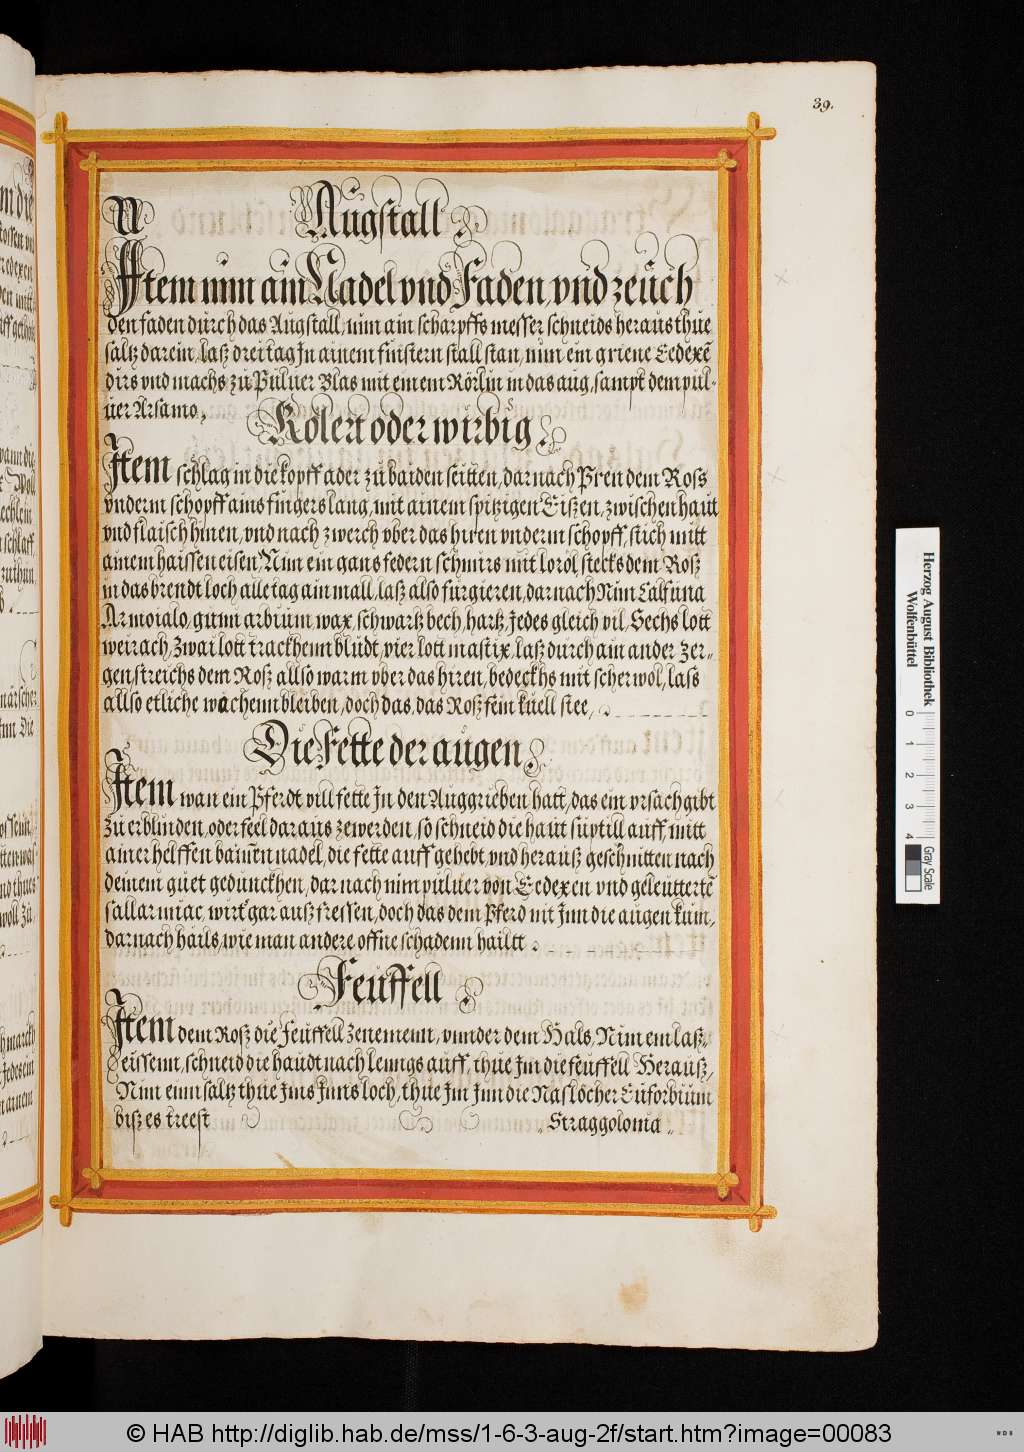 39.
A
Augstall
Item nim ain Nadel vnd Faden, vnd zeuch
den faden durch das Augstall, nim ain scharpffs messer schneids heraus thue
saltz darein, laß drei tag Jn ainem finstern stall stan, nim ein griene Eedexē
dirs vnd machs zu Puluer Blas mit einem Rörlin in das aug, sampt dem pul-
uer Arsamo,
Kolert oder wirbig
Item schlag in die kopff ader zu baiden seitten, darnach Pren dem Ross
vnderm schopff ains fingers lang, mit ainem spitzigen Eißen, zwischen haut
vnd flaisch hinen, vnd nach zwerch vber das hiren vnderm schopff, stich mitt
ainem haissen eisen, Nim ein gans federn schmirs mit lorol, stecks dem Roß
in das brendt loch alle tag ain mall, laß also furgieren, darnach Nim Calfuna
Armoialo, gumi arbium, wax, schwartz bech, hartz, Jedes gleich vil, Sechs lott
weirach, Zwai lott trackhenn bludt, vier lott mastix, laß durch ain ander Zer-
gen, streichs dem Roß allso warm vber das hiren, bedeckhs mit scherwol, lass
allso etliche wachenn bleiben, doch das, das Roß fein kuell stee,
Die Fette der augen
Item wan ein Pferdt vill fette Jn den Auggrieben hatt, das ein vrsach gibt
Zu erblinden, oder feel daraus zewerden, so schneid die haut suptill auff mitt
ainer helffen bainen nadel, die fette auff gehebt, vnd herauß geschnitten nach
deinem guet gedunckhen, darnach nim puluer von Eedexen vnd geleutterte
sallarmiac, wirt gar auß fressen, doch das dem Pferd nit Jnn die augen kum,
darnach hails, wie man andere offne schadenn hailtt
Feuffell
Item dem Roß die Feuffell Zenemenn, vnnder dem Hals, Nim ein laß-
eissenn, schneid die haudt nach lenngs auff, thue Jm die feuffell Herauß,
Nim einn saltz thue Jms Jnns loch, thue Jm Jnn die Naslöcher Euforbium
biß es treest
Straggolonia
Herzog August Bibliothek
Wolfenbüttel
0 1 2 3 4
Gray Scale
© HAB http://diglib.hab.de/mss/1-6-3-aug-2f/start.htm?image=00083